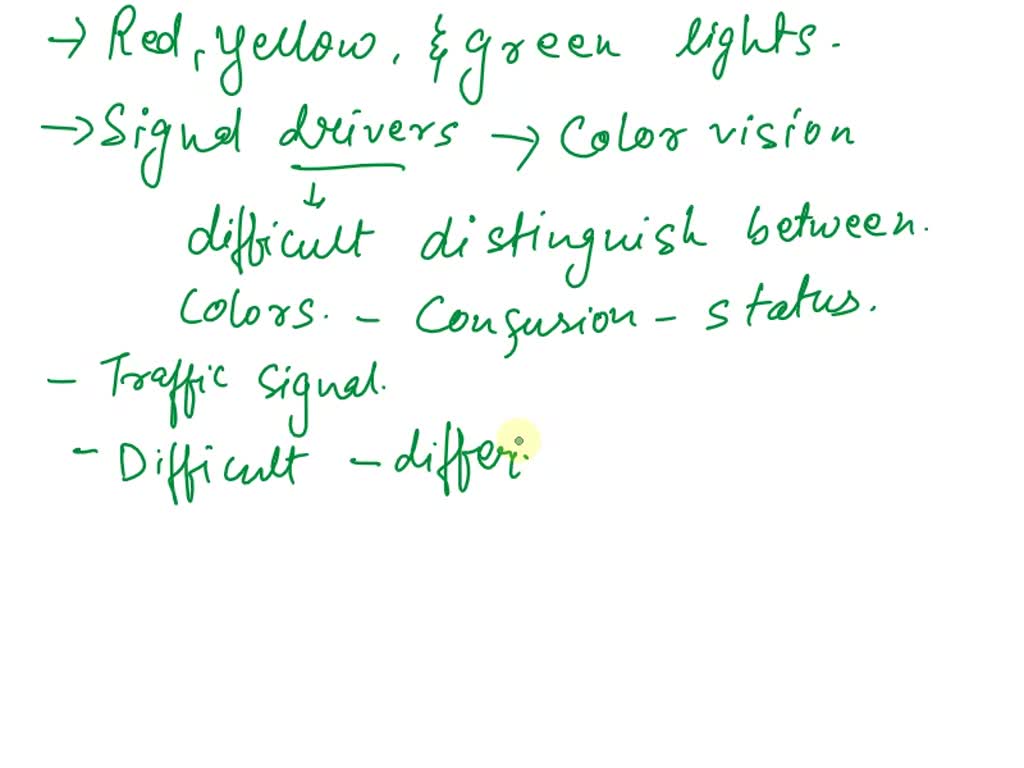 → Red, yellow, & green lights.
→ Signal drivers → Color vision
↓
difficult distinguish between.
Colors. - Confusion - status.
- Traffic signal.
- Difficult - differ